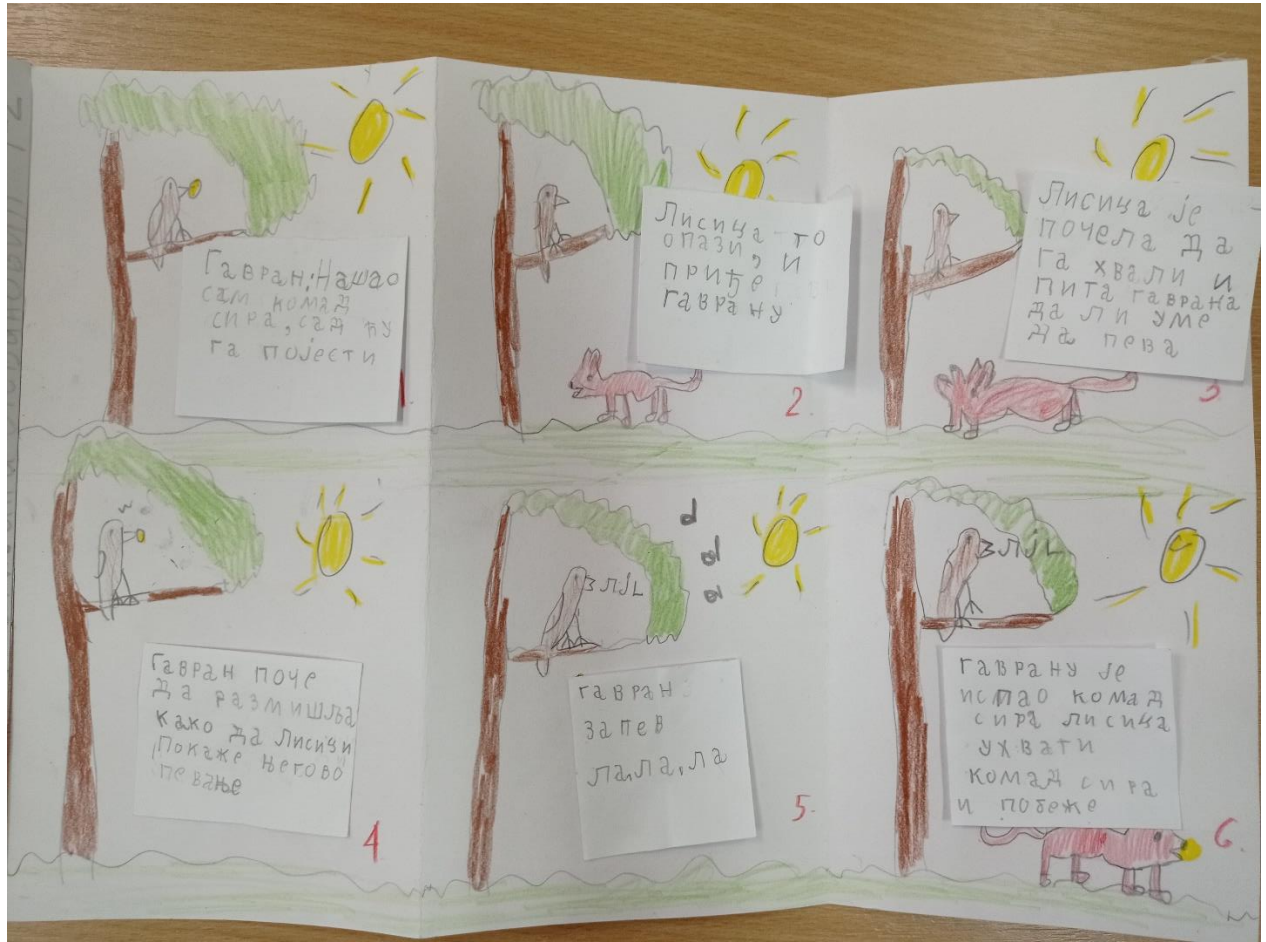 Гавран: Нашао
сам комад
сира, сад ћу
га појести
Лисица то
опази, и
приђе
гаврану
2.
Лисица је
почела да
га хвали и
пита гаврана
да ли уме
да пева
3
Гавран поче
да размишља
како да Лисици
Покаже његово
певање
4
гавран
запев
ла,ла,ла
5.
гаврану је
испао комад
сира лисица
ухвати
комад сира
и побеже
6.